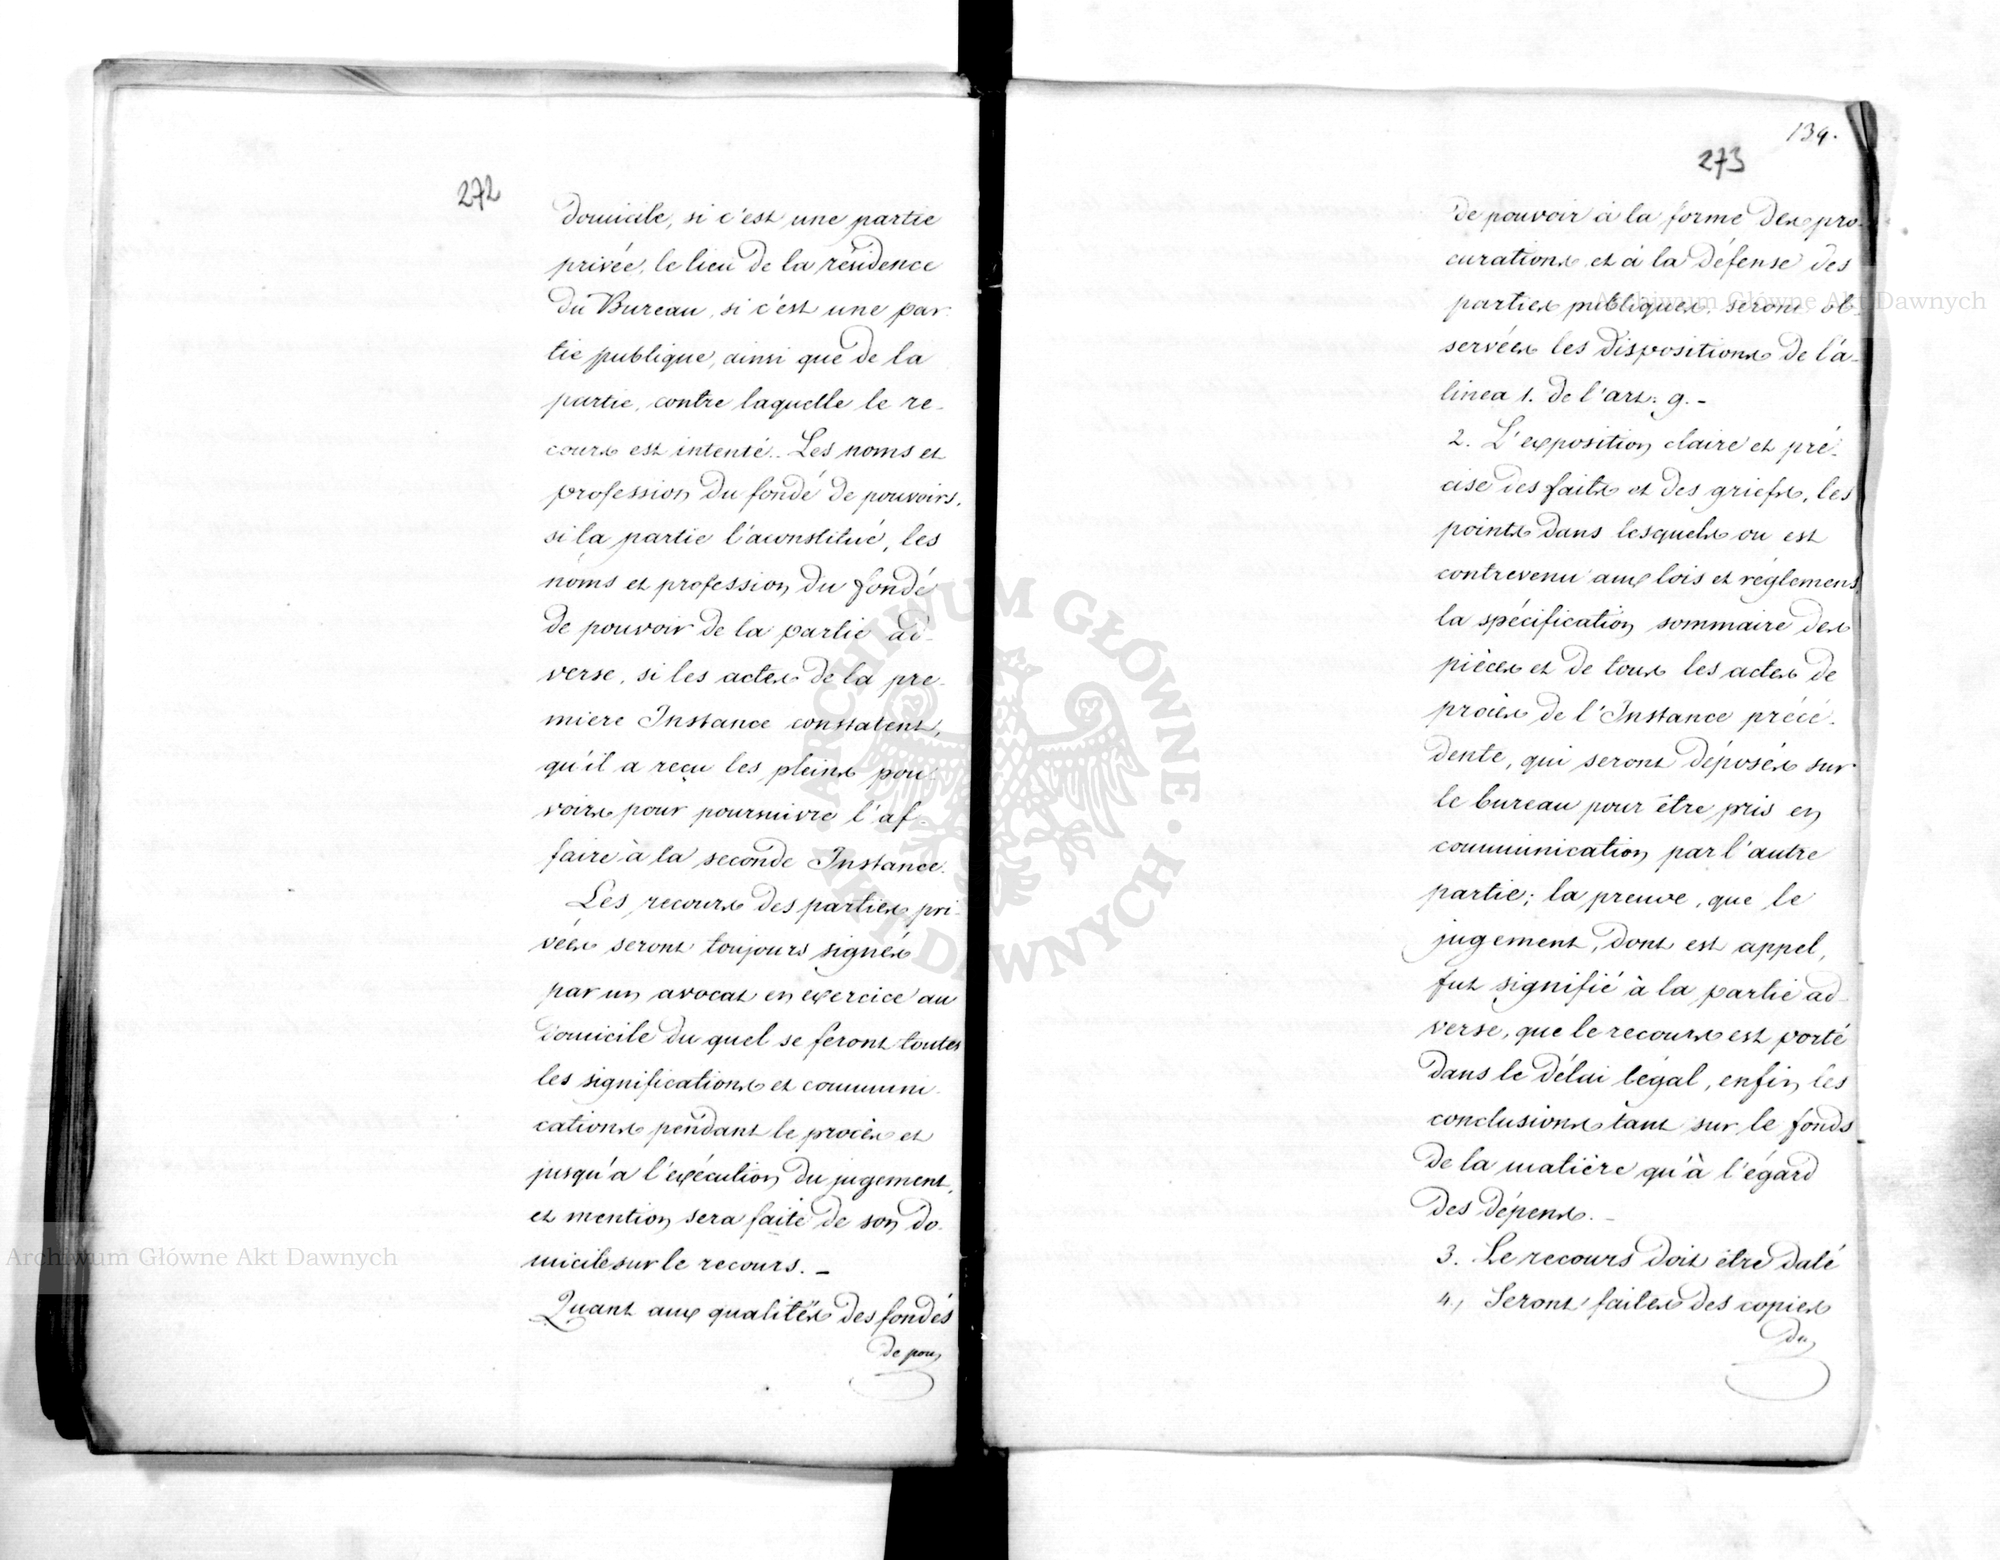 272
domicile, si c'est une partie
privée, le lieu de la résidence
du Bureau, si c'est une par-
tie publique, ainsi que de la
partie, contre laquelle le re-
cours est intenté. Les noms et
profession du fondé de pouvoirs,
si la partie l'a constitué, les
noms et profession du fondé
de pouvoir de la partie ad-
verse, si les actes de la pre-
miere Instance constatent,
qu'il a reçu les pleins pou-
voirs pour poursuivre l'af-
faire à la seconde Instance.
Les recours des parties pri-
vées seront toujours signés
par un avocat en exercice au
domicile du quel se feront toutes
les significations et communi-
cations pendant le procès et
jusqu'a l'exécution du jugement,
et mention sera faite de son do-
micile sur le recours. –
Quant aux qualités des fondés
de pou
139.
273
de pouvoir à la forme des pro-
curations et à la défense des
parties publiques, seront ob-
servées les dispositions de l'a-
linea 1. de l'art: 9. –
2. L'exposition claire et pré-
cise des faits et des griefs, les
points dans lesquels on est
contrevenu aux lois et réglemens
la spécification sommaire des
pièces et de tous les actes de
procès de l'Instance précé-
dente, qui seront déposés sur
le bureau pour être pris en
communication par l'autre
partie; la preuve, que le
jugement, dont est appel,
fut signifié à la partie ad-
verse, que le recours est porté
dans le délai légal, enfin les
conclusions tant sur le fonds
de la matière qu'à l'égard
des dépens. –
3. Le recours doit être daté
4, Seront faites des copies
du
Archiwum Główne Akt Dawnych
Archiwum Główne Akt Dawnych
ARCHIWUM GŁÓWNE · AKT DAWNYCH ·